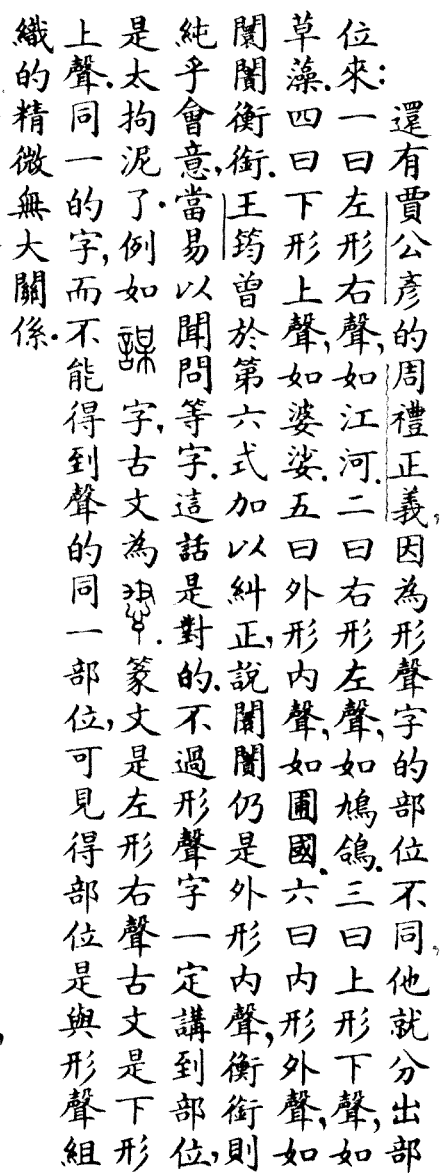 還有賈公彥的周禮正義,因為形聲字的部位不同,他就分出部
位來:一曰左形右聲,如江河.二曰右形左聲,如鳩鴿.三曰上形下聲,如
草藻.四曰下形上聲,如婆娑.五曰外形內聲,如圃國.六曰內形外聲,如
闤闠衡銜.王筠曾於第六式加以糾正,說闤闠仍是外形內聲,衡銜則
純乎會意,當易以聞問等字.這話是對的.不過形聲字一定講到部位,
是太拘泥了.例如謀字,古文為.篆文是左形右聲古文是下形
上聲.同一的字,而不能得到聲的同一部位,可見得部位是與形聲組
織的精微無大關係.